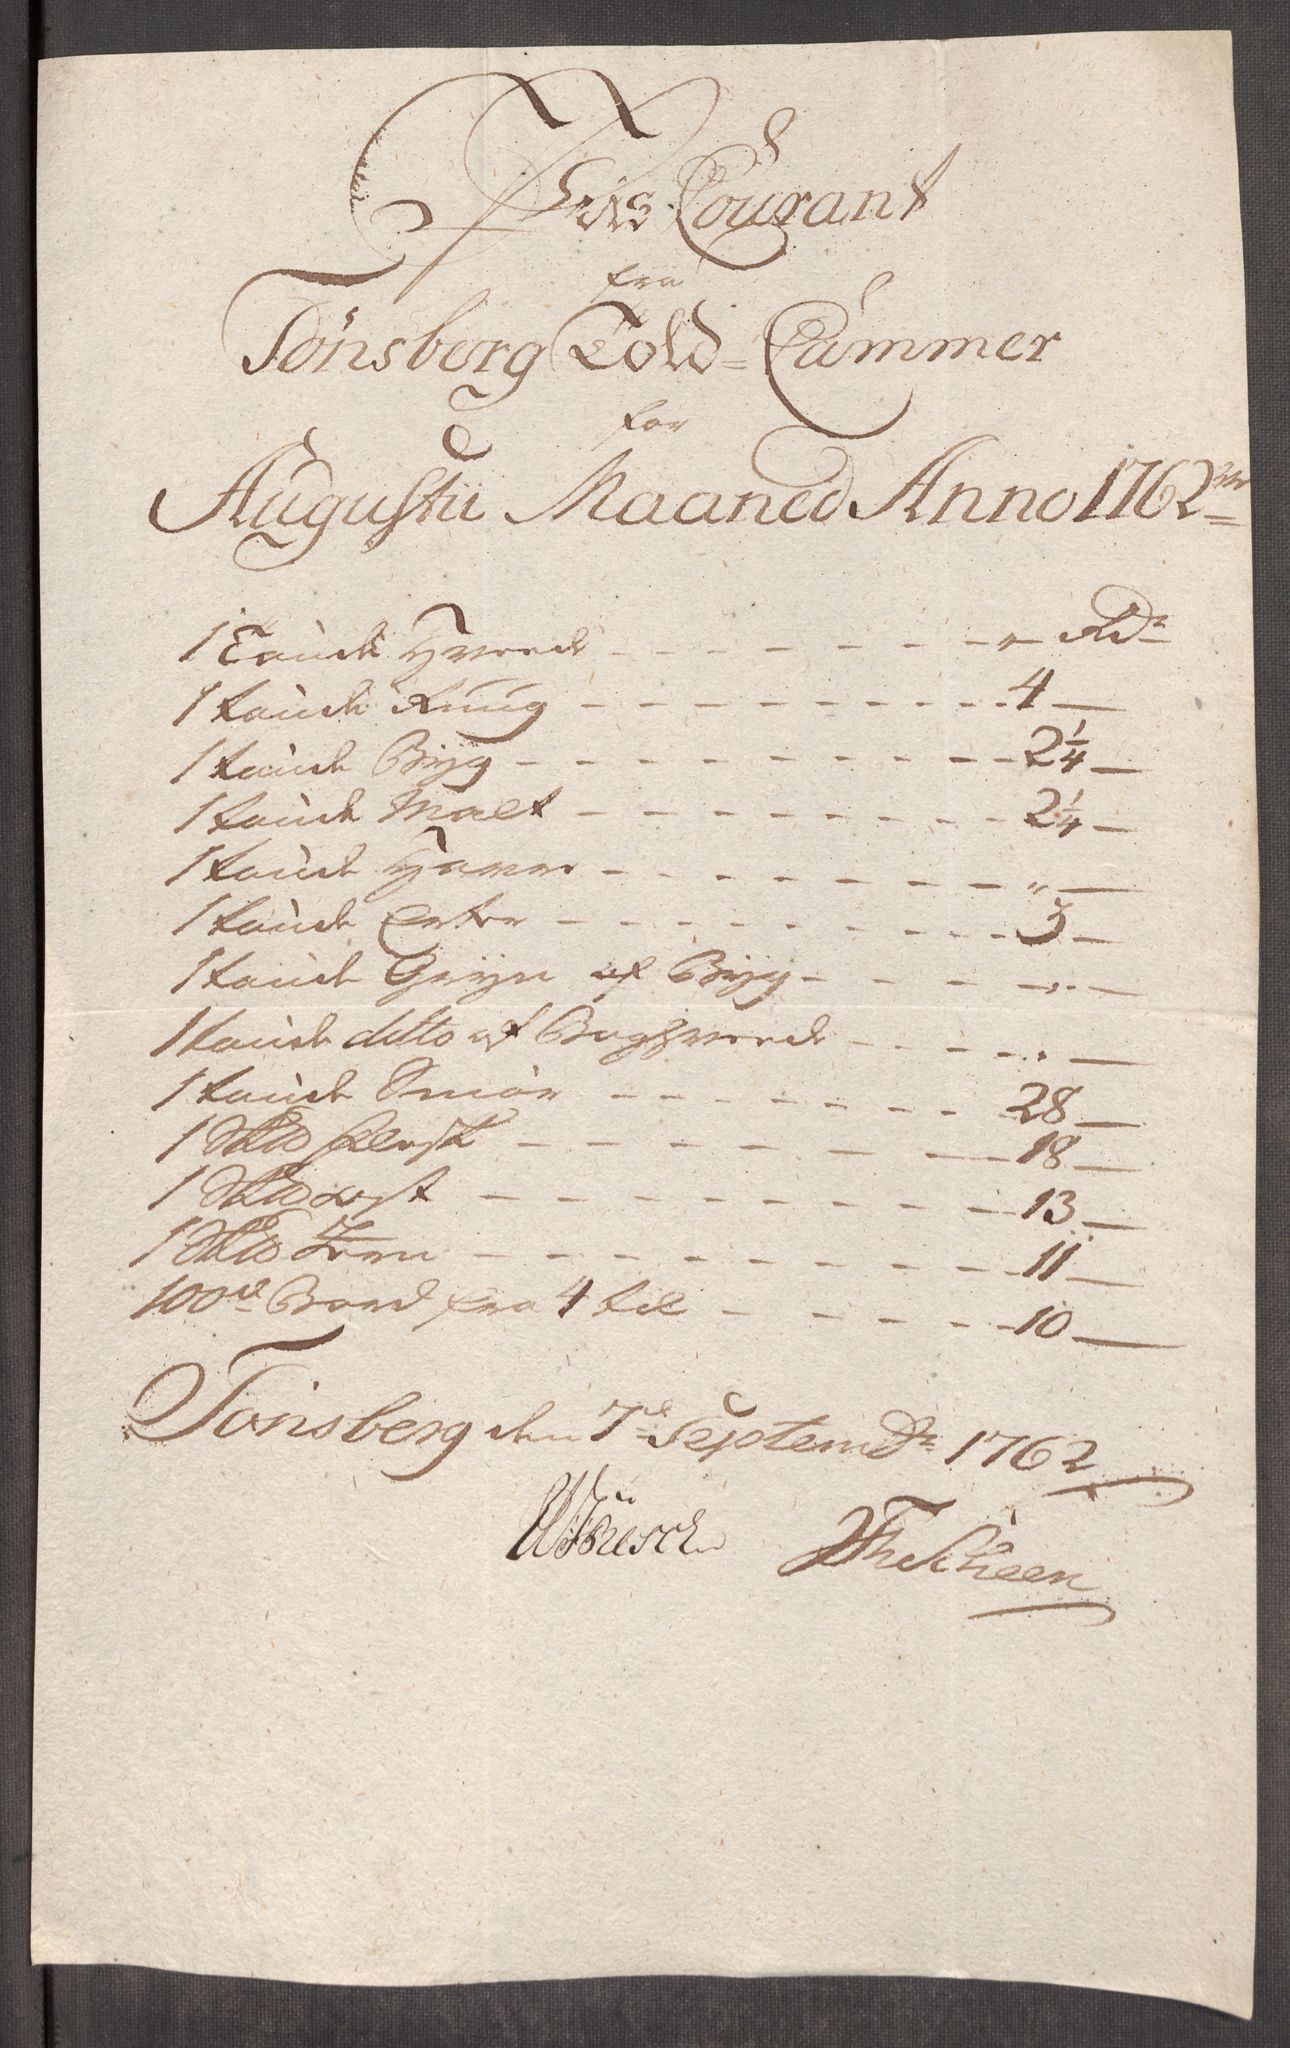 Priis Courant
fra
Tönsberg Told-Cammer
for
Augustii Maaned Anno 1762
1 Tønde Hvede - - - - - - - " Rdr
1 tønde Rúúg - - - - - - - 4 —
1 tønde Byg - - - - - - - 2 1/4 —
1 tønde Malt - - - - - - - 2 1/4 —
1 tønde Havre - - - - - - - " —
1 tønde Erter - - - - - - - 3 —
1 tønde Gryn af Byg - - - - " —
1 tønde ditto af Boghvede - - - - " —
1 tønde Smör - - - - - - - 28 —
1 Flesk - - - - - - - 18 —
1 ost - - - - - - - 13 —
1 Jern - - - - - - - 11 —
100de Bord fra 4 til - - - - - 10 —
Tönsberg den 7de Septembr 1762